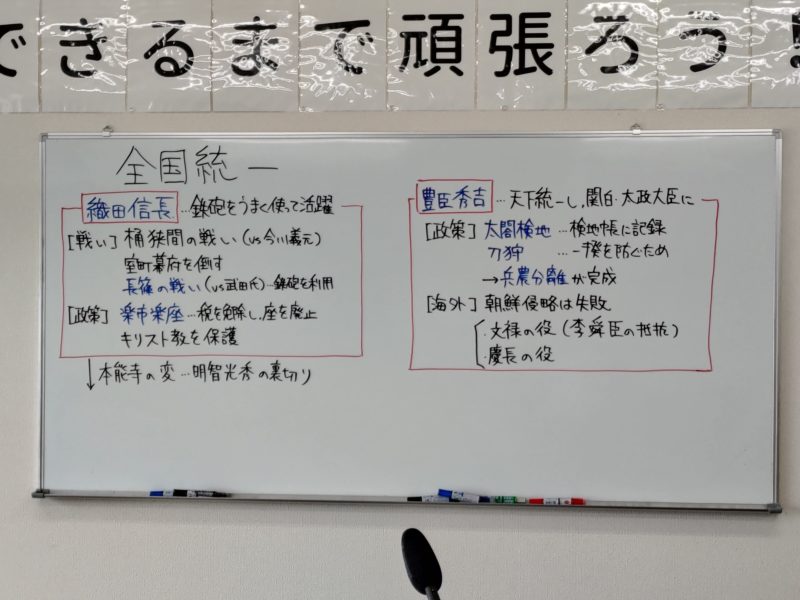 できるまで頑張ろう!
全国統一
織田信長…鉄砲をうまく使って活躍
[戦い] 桶狭間の戦い(vs今川義元)
室町幕府を倒す
長篠の戦い(vs武田氏)…鉄砲を利用
[政策] 楽市楽座…税を免除し,座を廃止
キリスト教を保護
↓本能寺の変…明智光秀の裏切り
豊臣秀吉…天下統一し,関白・太政大臣に
[政策] 太閤検地…検地帳に記録
刀狩…一揆を防ぐため
→兵農分離が完成
[海外] 朝鮮侵略は失敗
・文禄の役(李舜臣の抵抗)
・慶長の役